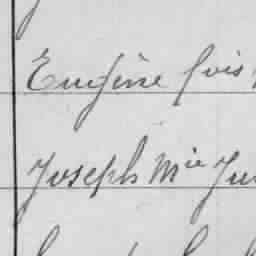 Eugène fois
Joseph Mie